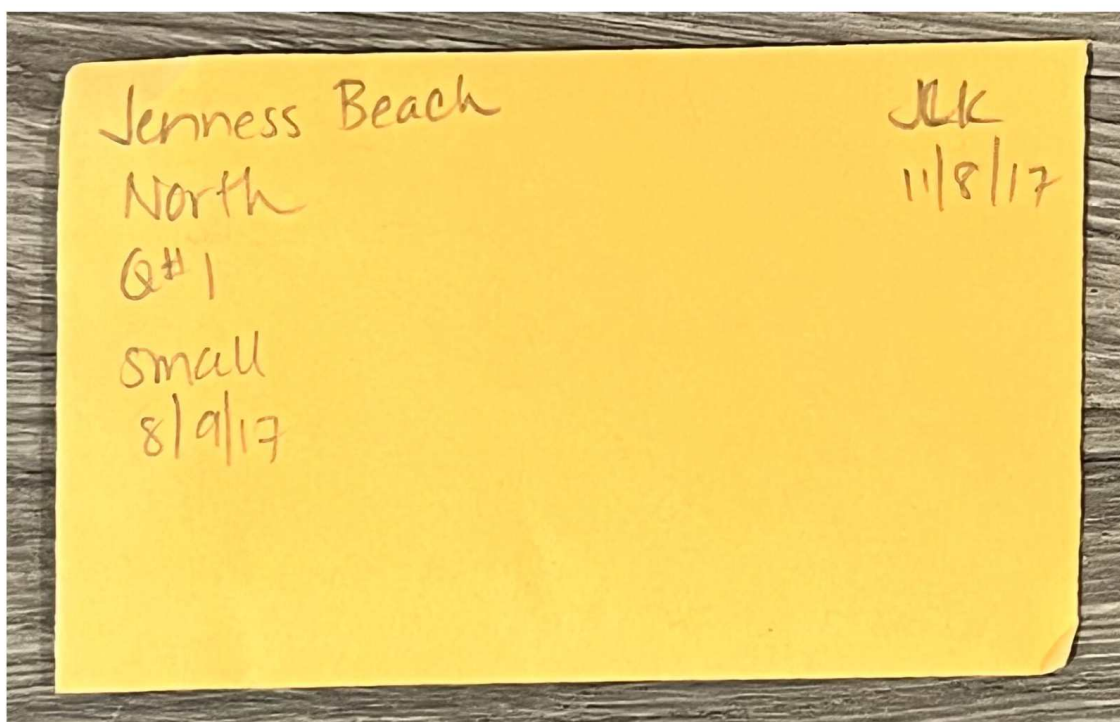 Jenness Beach
North
Q#1
small
8/9/17
JLK
11/8/17